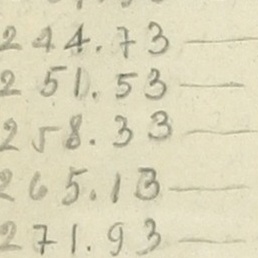 244.73 —
251.53 —
258.33 —
265.13 —
271.93 —